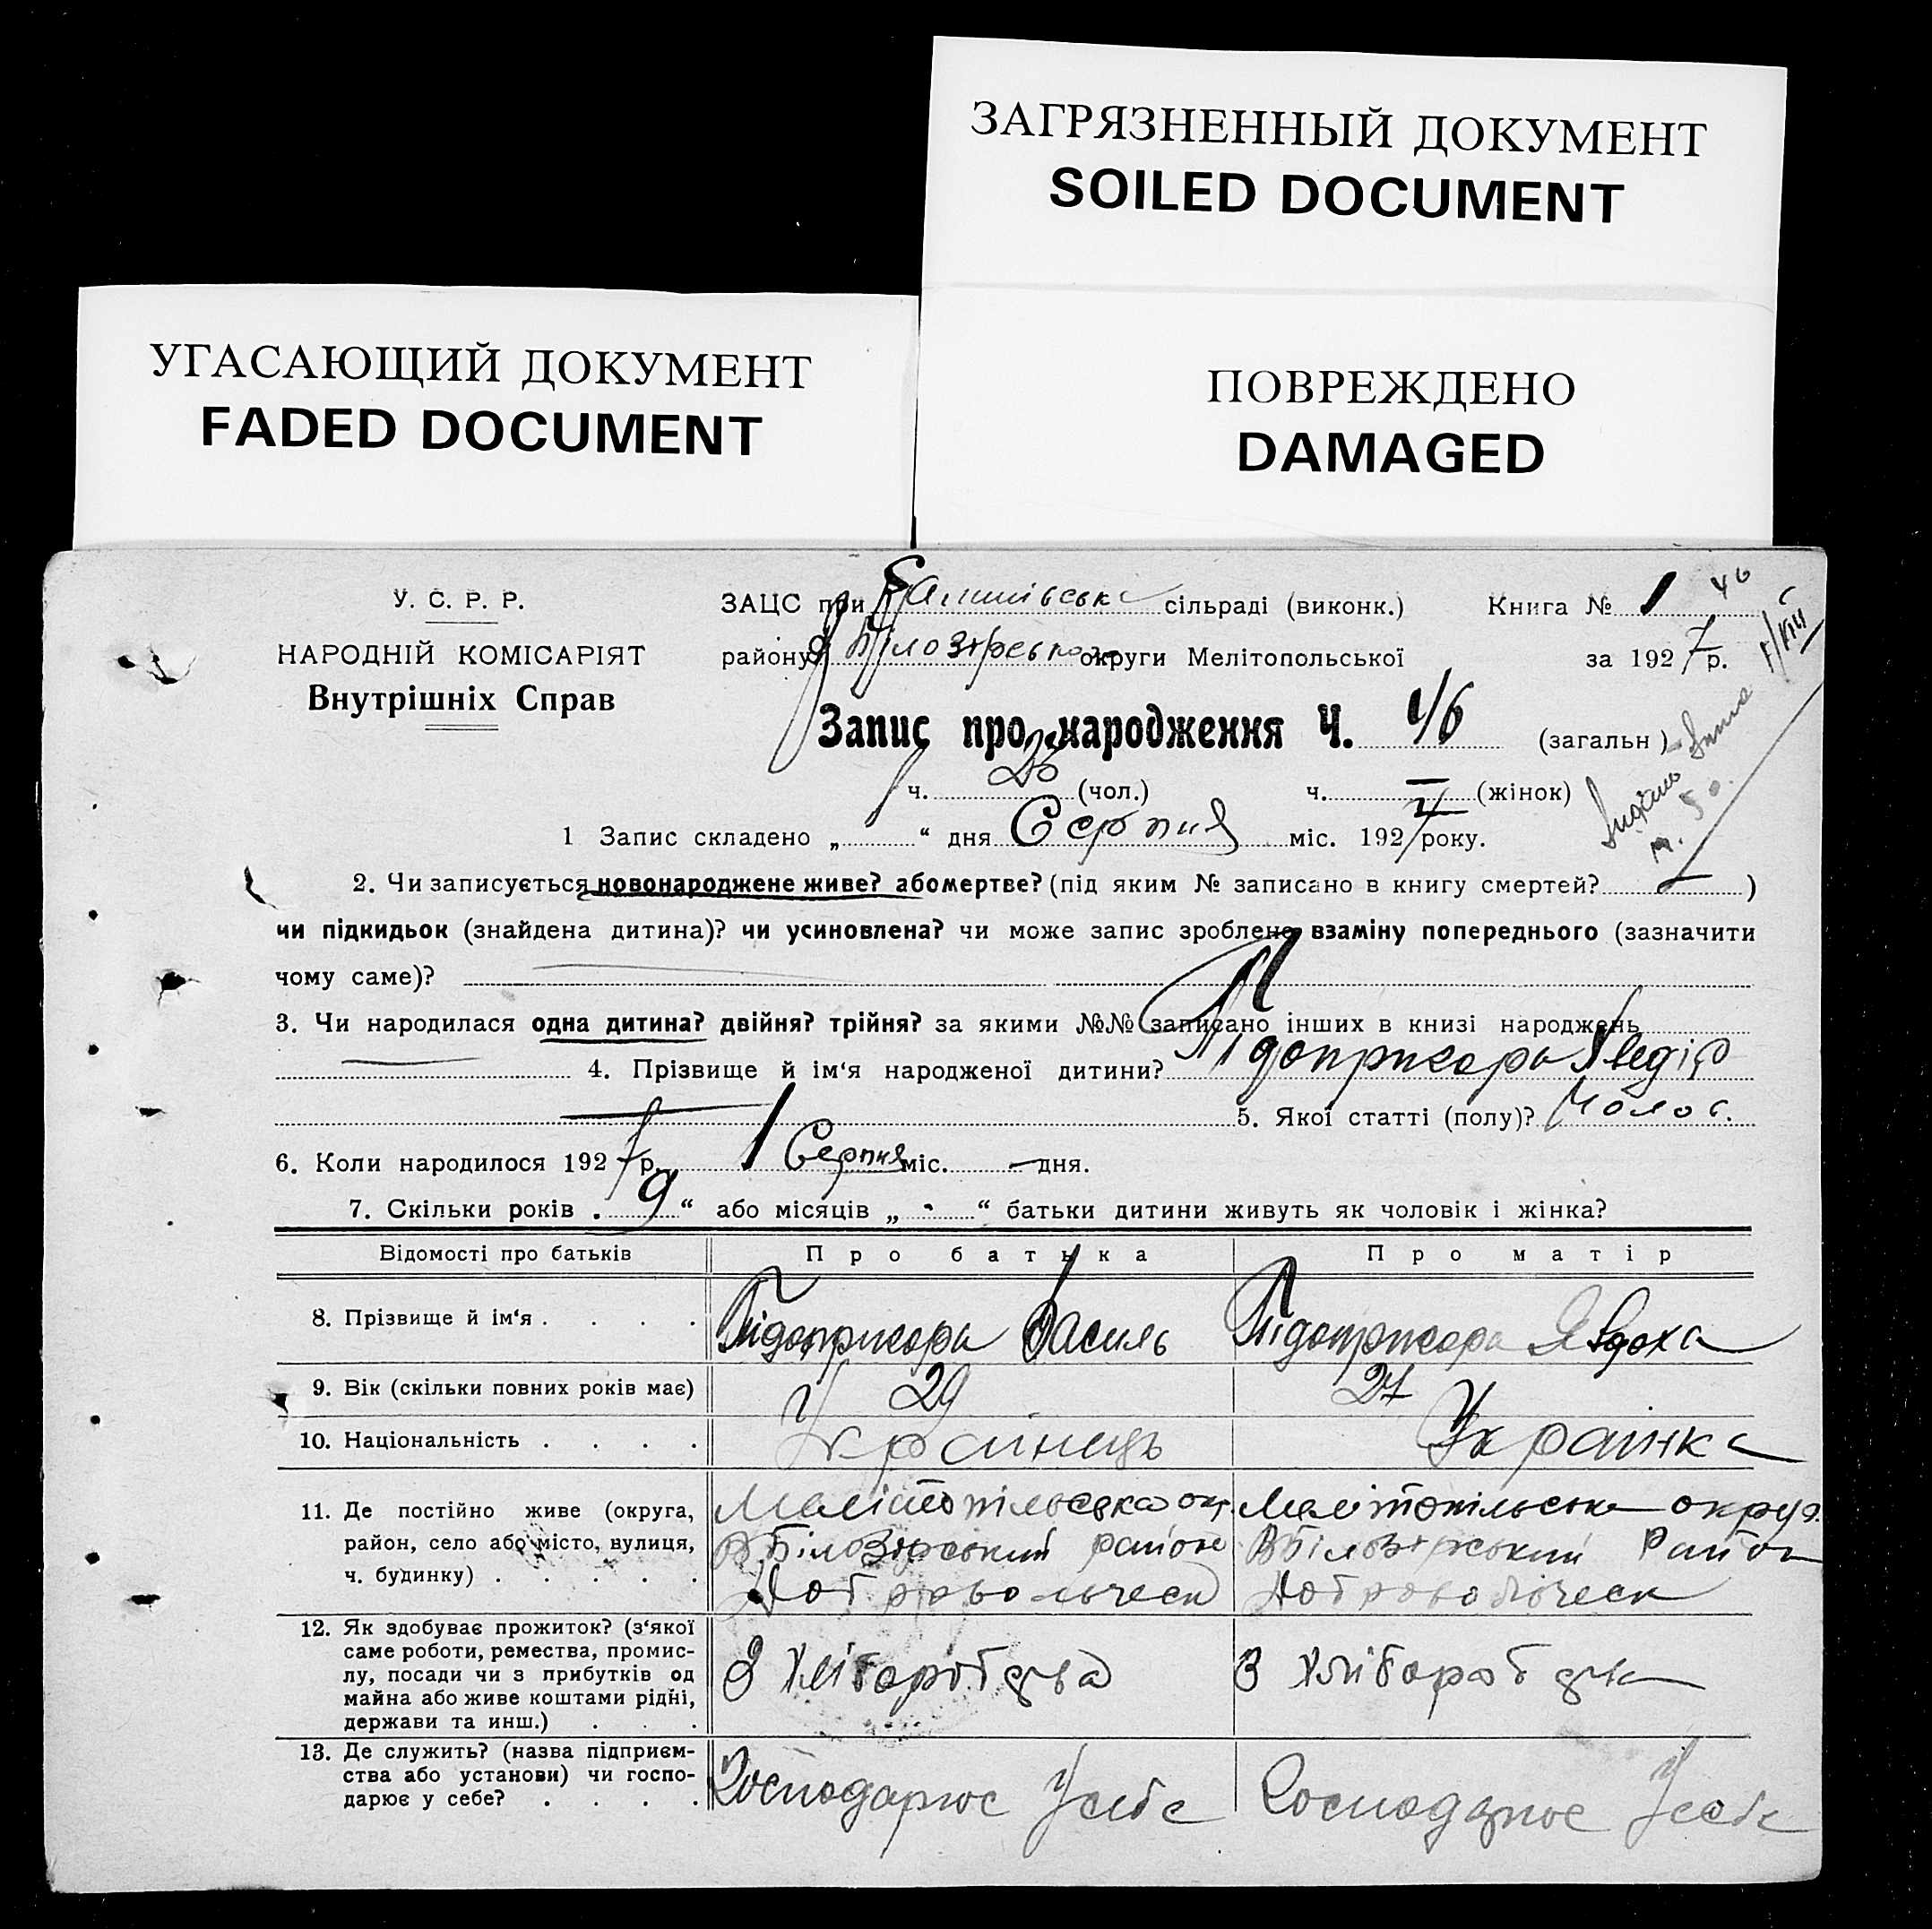 ЗАГРЯЗНЕННЫЙ ДОКУМЕНТ
SOILED DOCUMENT
УГАСАЮЩИЙ ДОКУМЕНТ
FADED DOCUMENT
ПОВРЕЖДЕНО
DAMAGED
У. С. Р. Р.
НАРОДНІЙ КОМІСАРІЯТ
Внутрішніх Справ
ЗАЦС при сільраді (виконк.) Книга № 1
району округи Мелітопольської за 1927 р.
Запис про народження Ч. 46 (загальн)
ч. 25 (чол.) ч. — (жінок)
1 Запис складено „ “ дня Серпня міс. 1927 року.
2. Чи записується новонароджене живе? або мертве? (під яким № записано в книгу смертей? — )
чи підкидьок (знайдена дитина)? чи усиновлена? чи може запис зроблено взаміну попереднього (зазначити
чому саме)?
3. Чи народилася одна дитина? двійня? трійня? за якими №№ записано інших в книзі народжень
4. Прізвище й ім‘я народженої дитини? Підопригора
5. Якої статті (полу)? Чолов.
6. Коли народилося 1927 р. 1 Серпня міс. — дня.
7. Скільки років „ 9 “ або місяців „ - “ батьки дитини живуть як чоловік і жінка?
Відомості про батьків Про батька Про матір
8. Прізвище й ім‘я . . . . Підопригора Василь Підопригора Явдоха
9. Вік (скільки повних років має) 29 27
10. Національність . . . . Українець Украінка
11. Де постійно живе (округа,
район, село або місто, вулиця,
ч. будинку) . . . . .
12. Як здобуває прожиток? (з‘якої
саме роботи, ремества, промис-
лу, посади чи з прибутків од
майна або живе коштами рідні,
держави та инш.) . . .
З хліборобства З хліборобства
13. Де служить? (назва підприєм-
ства або установи) чи госпо-
дарює у себе? . . . .
Господарює У себе Господарює У себе